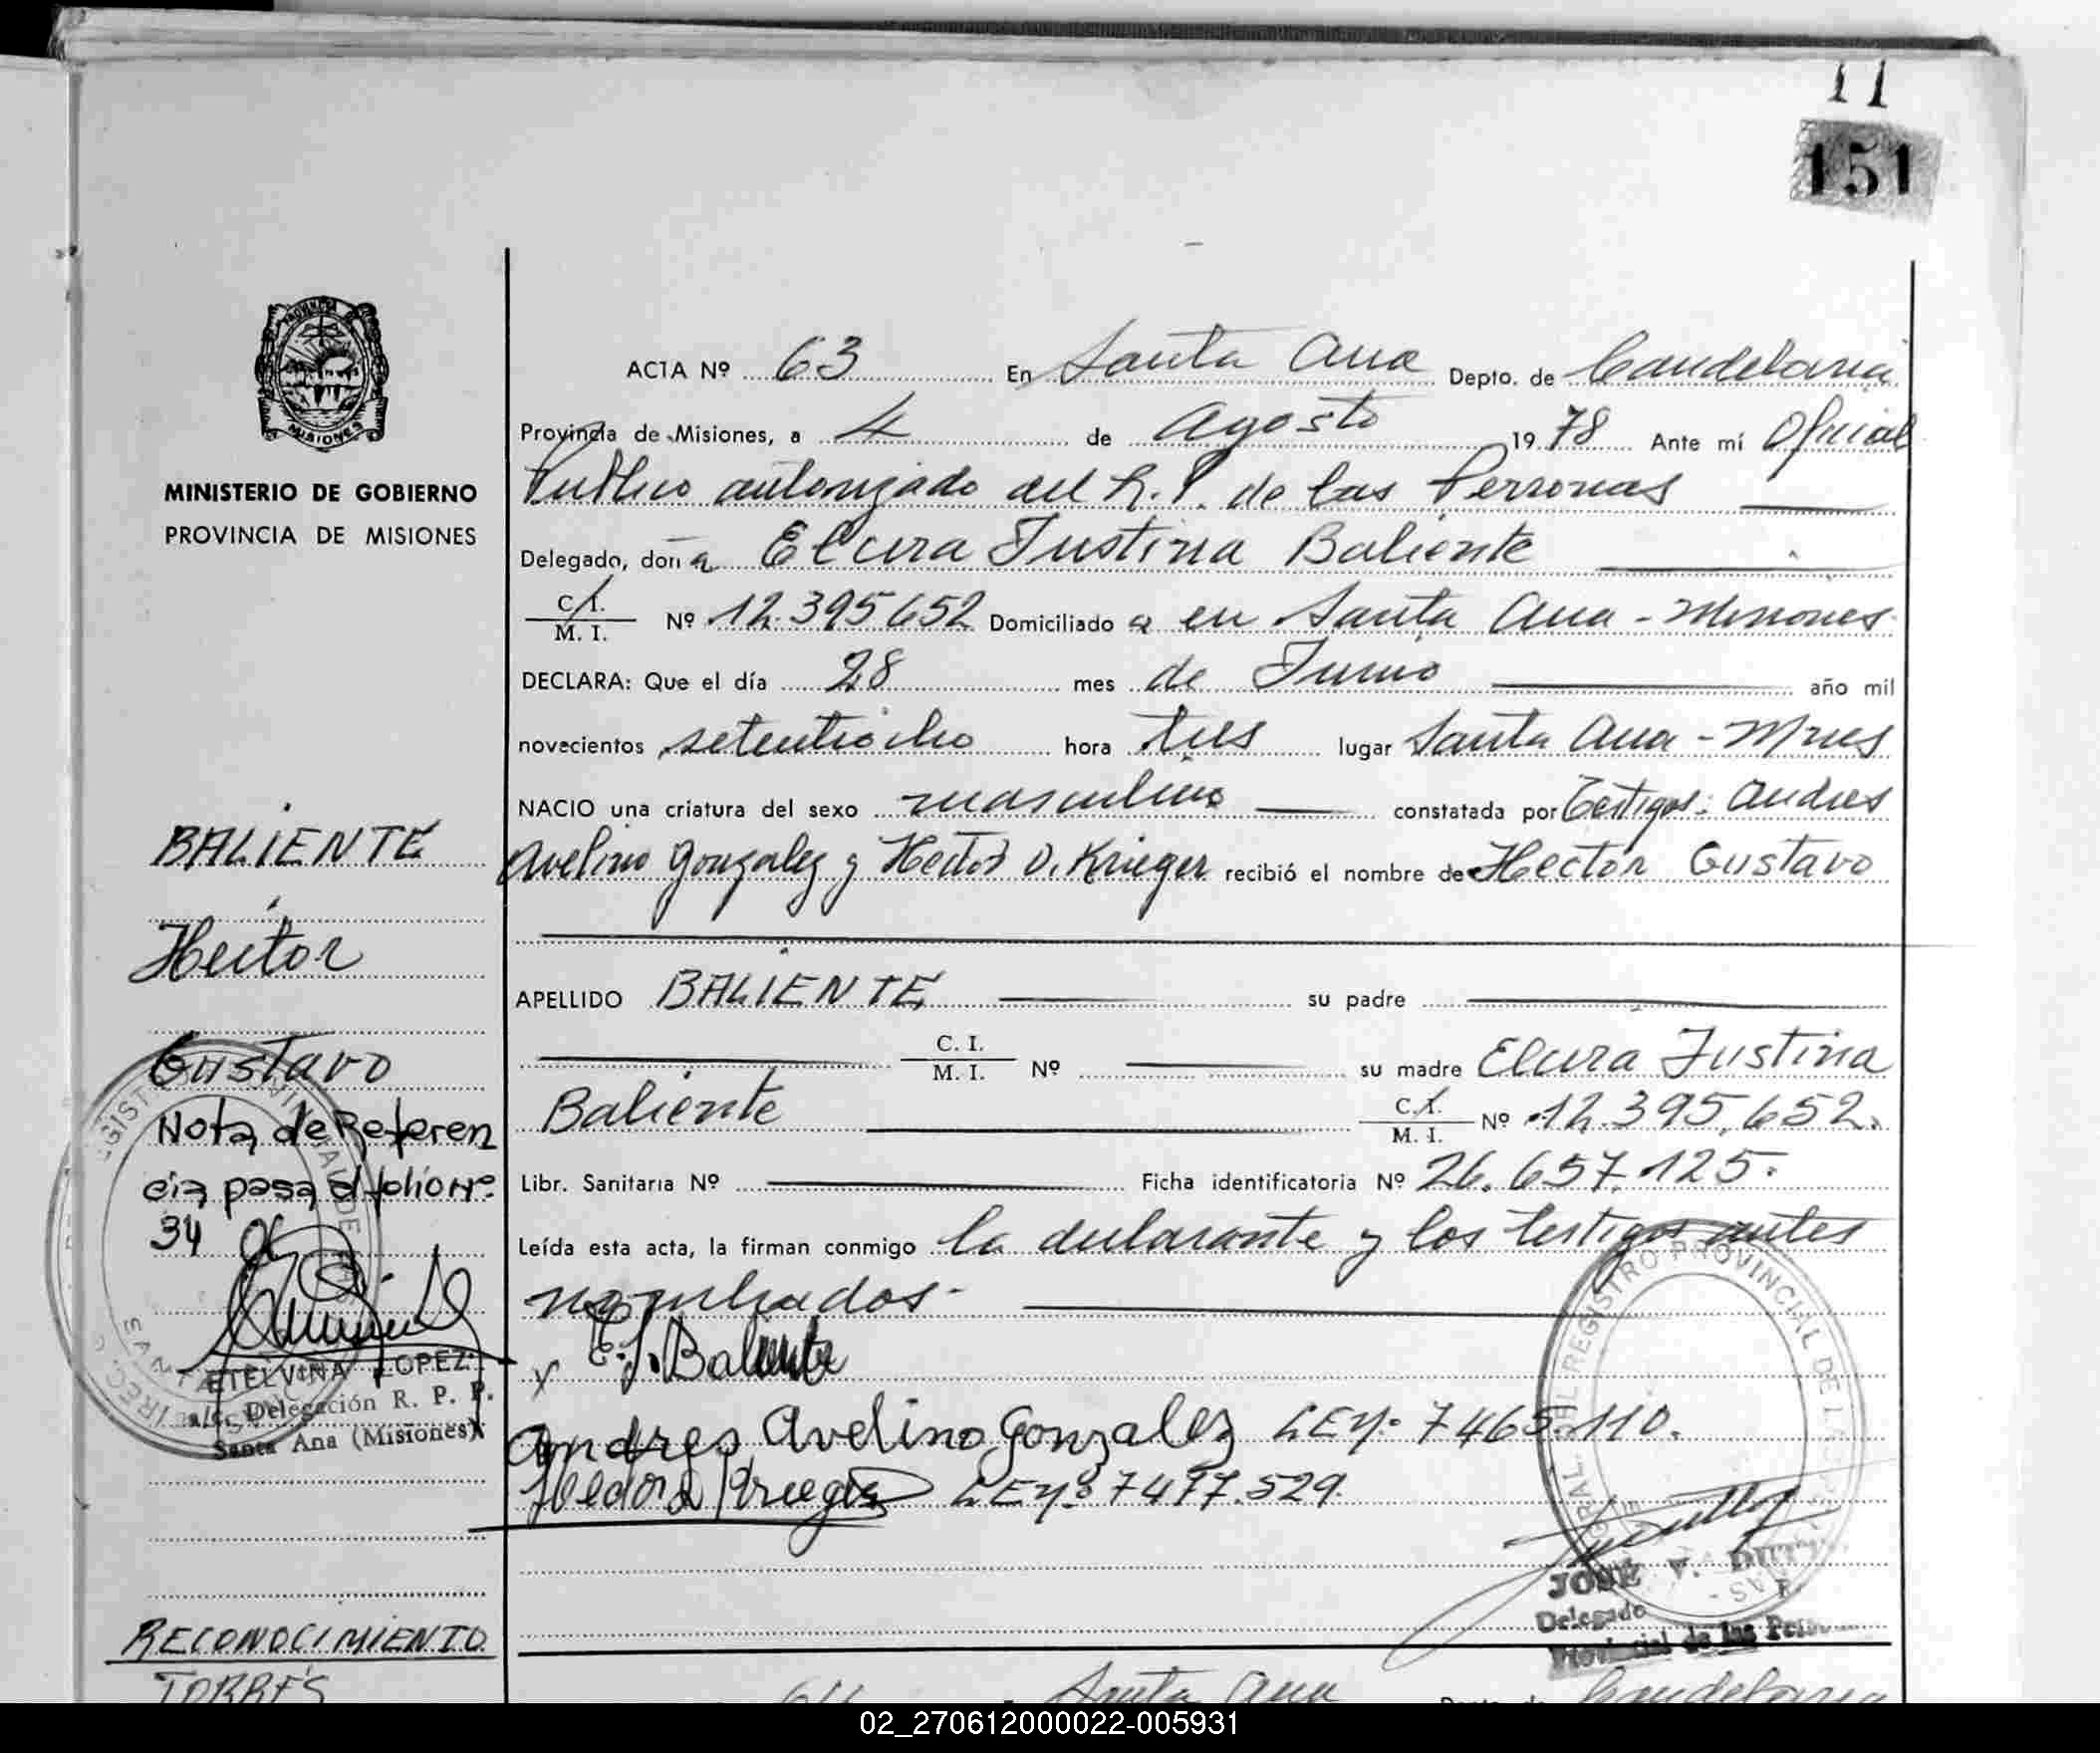 11
151
MISIONES
MINISTERIO DE GOBIERNO
PROVINCIA DE MISIONES
BALIENTE
Hector
Gustavo
Nota de Referen
cia pasa al folio nº
34
ETELVINA LOPEZ
a/c. Delegación R. P. P.
Santa Ana (Misiones)
RECONOCIMIENTO
TORRES
ACTA Nº 63 En Santa Ana Depto. de Candelaria
Provincia de Misiones, a 4 de Agosto 1978 Ante mí Oficial
Publico autorizado del R.P. de las Personas
Delegado, doña Elcira Justina Baliente
C.I. / M.I. Nº 12.395.652 Domiciliado a en Santa Ana - Misiones
DECLARA: Que el día 28 mes de Junio año mil
novecientos setentiocho hora tres lugar Santa Ana - Mnes
NACIO una criatura del sexo masculino constatada por Testigos: Andres
Avelino Gonzalez y Hector D. Krieger recibió el nombre de Hector Gustavo
APELLIDO BALIENTE su padre
C. I. / M. I. Nº su madre Elcira Justina
Baliente C.I. / M. I. Nº 12.395.652.
Libr. Sanitaria Nº Ficha identificatoria Nº 26.657.125.
Leída esta acta, la firman conmigo la declarante y los testigos antes
nombrados-
x E.J. Baliente
Andres Avelino Gonzalez LE Nº 7465.110.
Hector D Krieger LE Nº 7477.529.
REGISTRO PROVINCIAL DE
JOSE V.
Delegado
Provincial de las
64 Santa Ana Depto. de Candelaria
02_270612000022-005931